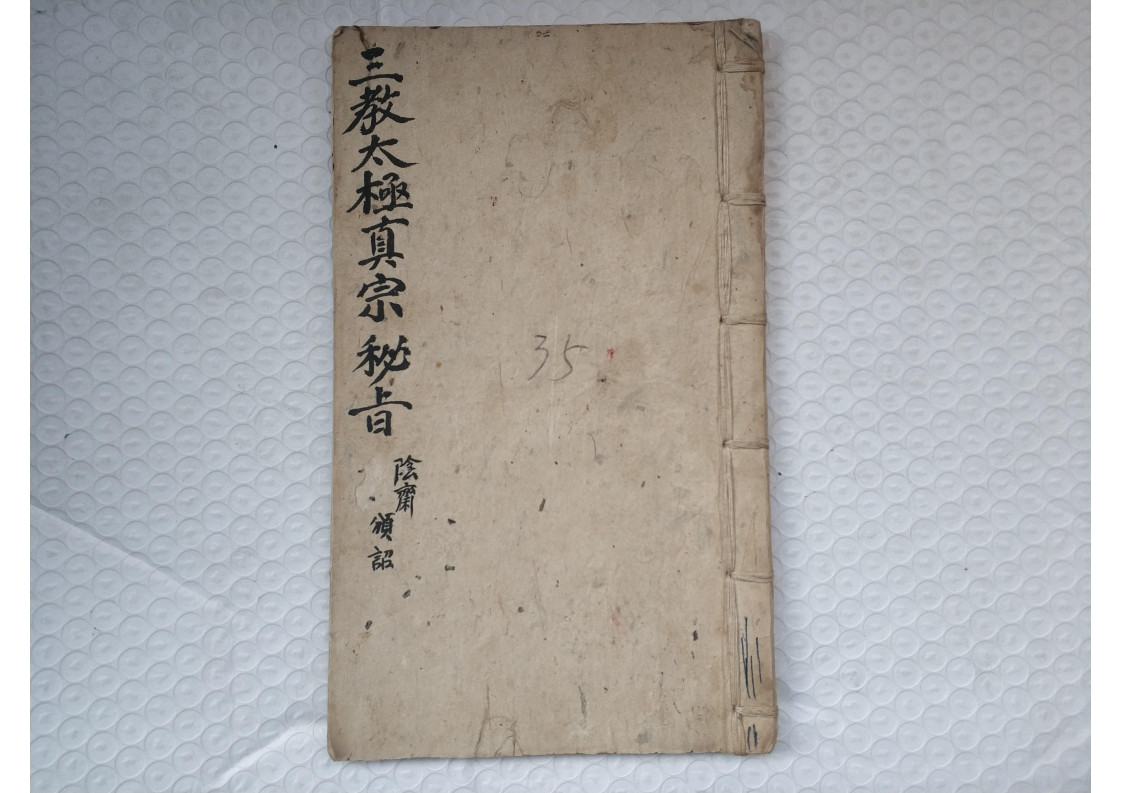 三教太極真宗秘旨
陰齋
頒詔
35